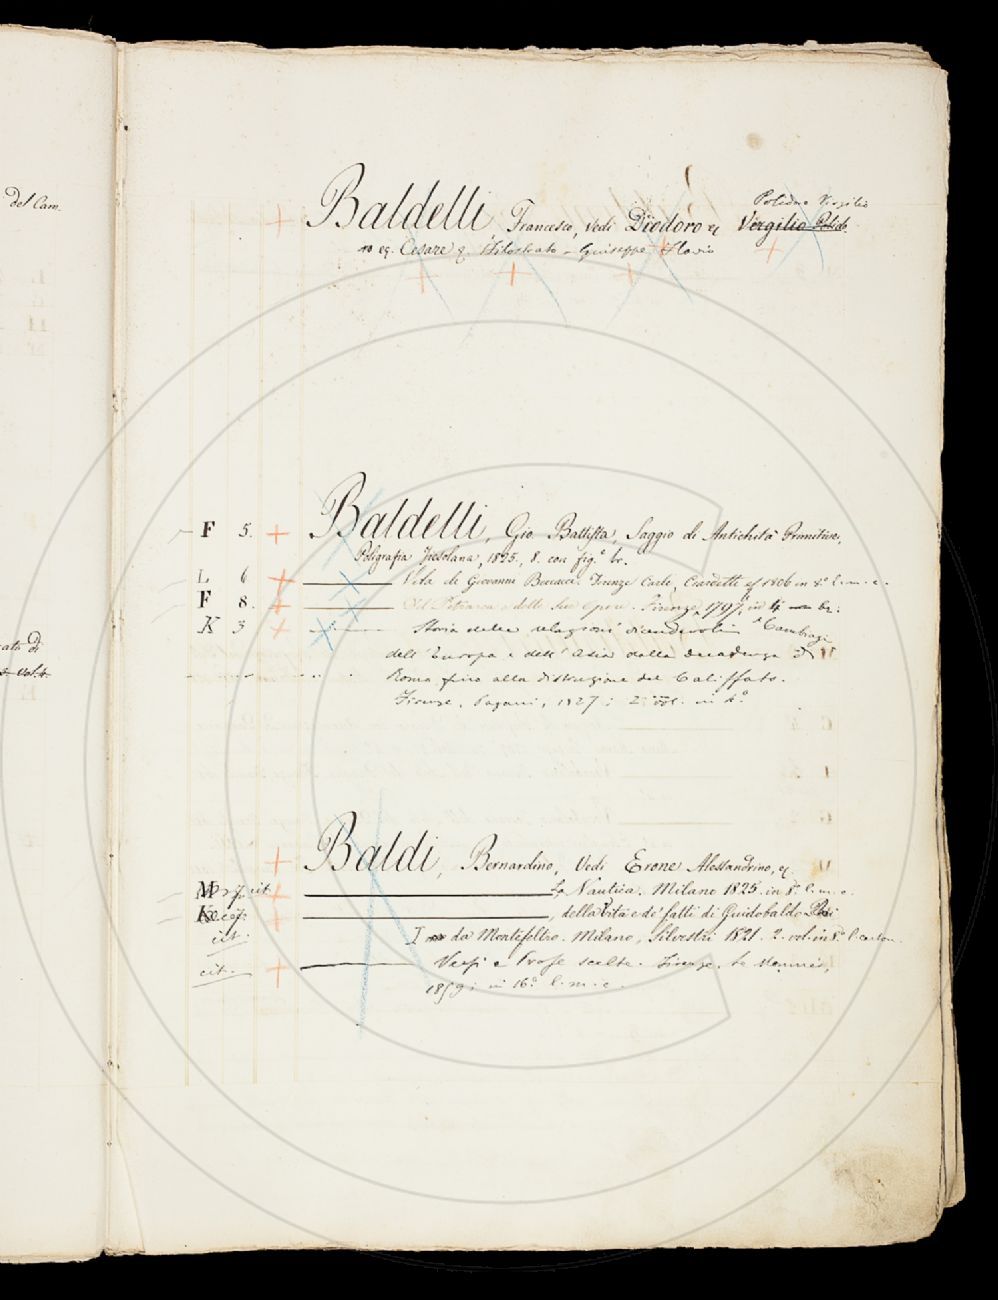 del Cam.
Polidoro Virgilio
Baldelli, Francesco, vedi Diodoro e Virgilio Polid.
Cesare e Filostrato - Giuseppe Flavio
F 5. Baldelli, Gio. Battista, Saggio di Antichità Primitive,
Poligrafia Fiesolana, 1825, 8. con fig.e br.
L 6 Vita di Giovanni Boccacci. Firenze Carli, Ciardetti 1806 in 8.o l. m. c.
F 8. Del Petrarca e delle sue opere. Firenze, 1797. in 4 br.
K 3 Storia delle relazioni vicendevoli
dell'Europa e dell'Asia dalla decadenza di
Roma fino alla distruzione del Califfato.
Firenze, Pagani, 1827; 2 vol. in 4.o
ato di
vol.
Baldi, Bernardino, Vedi Erone Alessandrino, e
M cit La Nautica. Milano 1825. in 8.o l. m. c.
K , della Vita e de' fatti di Guidobaldo
cit. I da Montefeltro. Milano, Silvestri 1821. 2. vol. in 8.o l. carton.
cit. Versi e Prose scelte. Firenze, Le Monnier,
1859; in 16.o l. m. c.